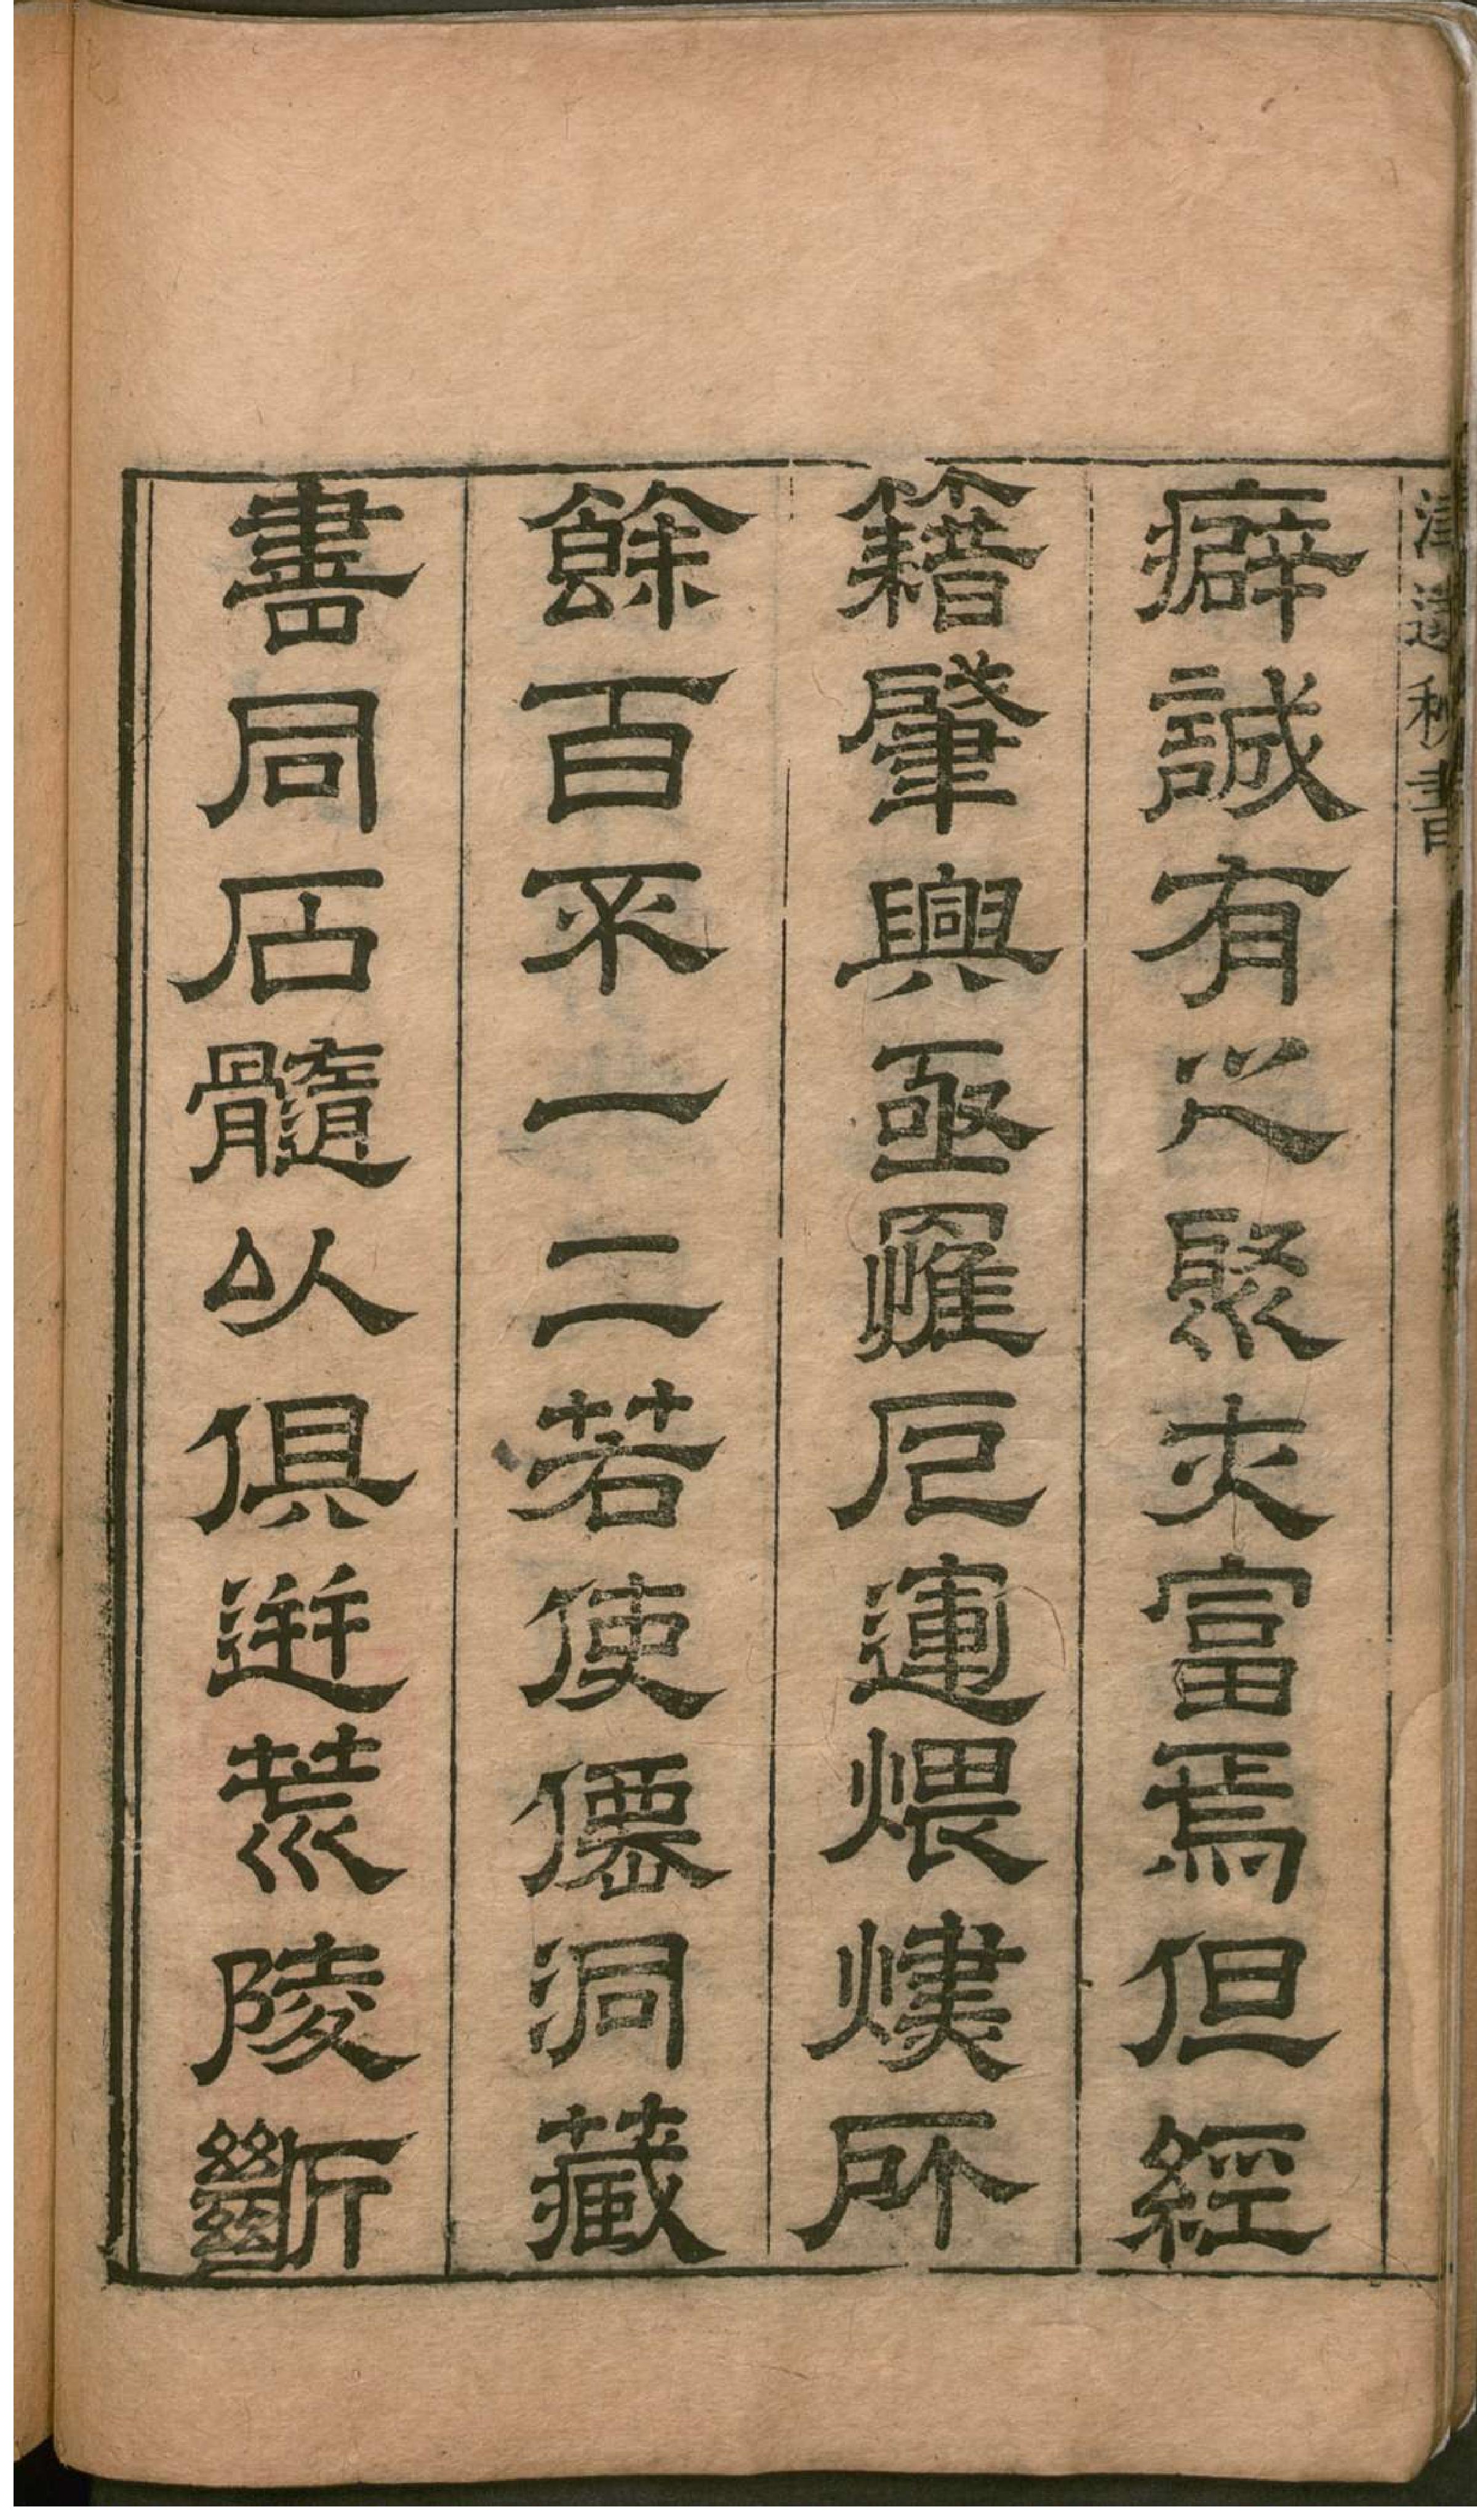 津逮秘書
癖誠有之聚亦富焉但經
籍肇興亟罹厄運煨燼所
餘百不一二若使僊洞藏
書同石髓以俱迸荒陵斷